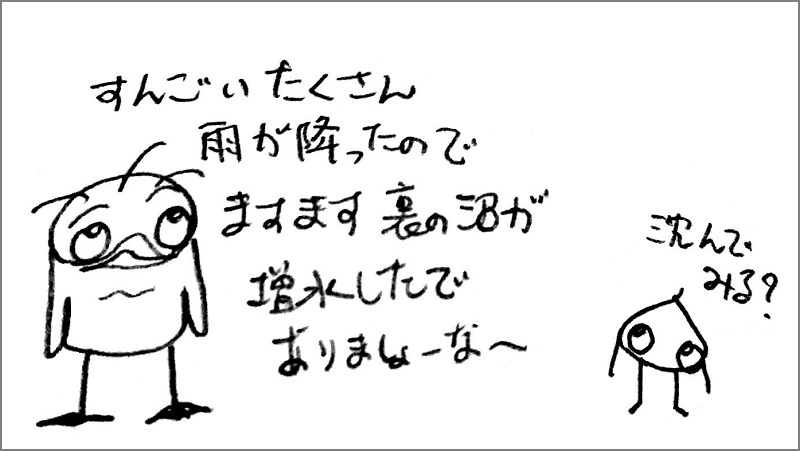 すんごいたくさん
雨が降ったので
ますます裏の沼が
増水したで
ありましょーな〜
沈んで
みる?